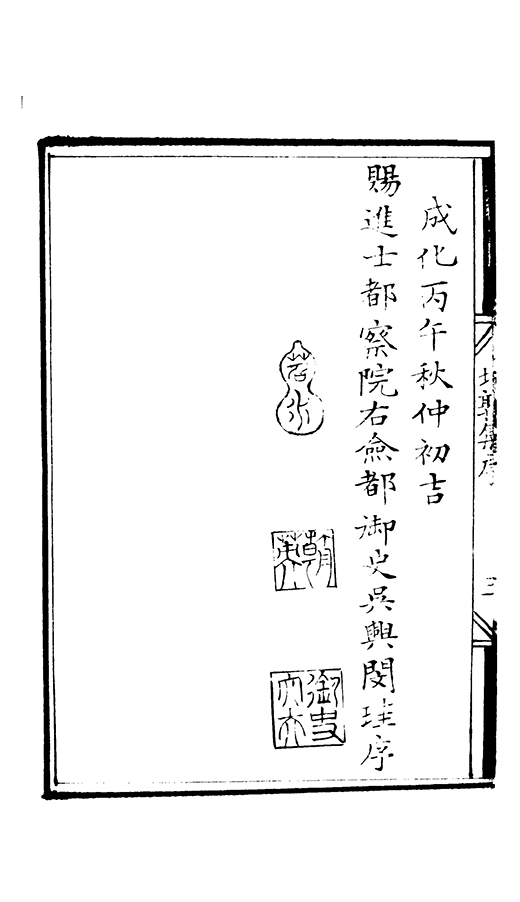 成化丙午秋仲初吉
賜進士都察院右僉都御史吳興閔珪序
朝瑛
御史大夫